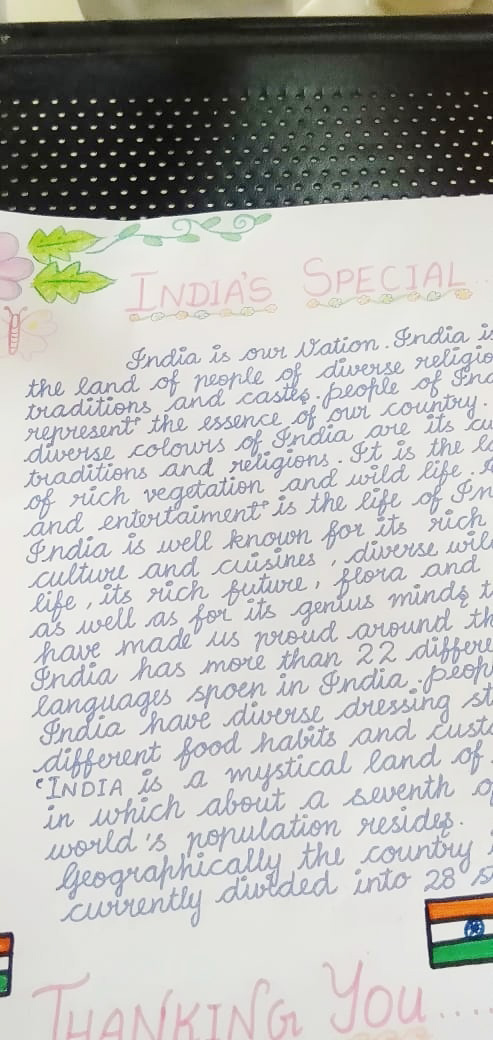 INDIA'S SPECIAL..
India is our Nation. India is
the land of people of diverse religio
traditions and castes. people of Ind
represent the essence of our country.
diverse colours of India are its cu
traditions and religions. It is the la
of rich vegetation and wild life.
and entertaiment is the life of In
India is well known for its rich
culture and cuisines, diverse wil
life, its rich future, flora and
as well as for its genius minds t
have made us proud around th
India has more than 22 differe
languages spoen in India. peop
India have diverse dressing st
different food habits and cust
"INDIA is a mystical land of
in which about a seventh o
world's population resides.
Geographically the country
currently divided into 28 s
THANKING YOU....